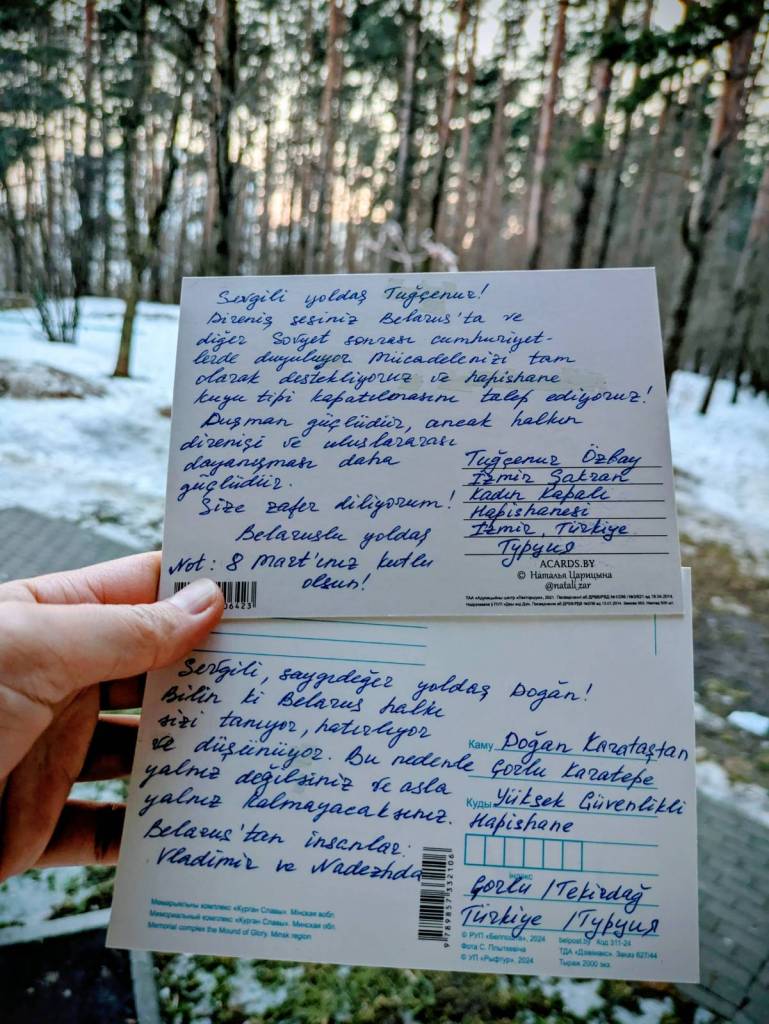 Sevgili yoldaş Tuğçenur!
Direniş sesiniz Belarus'ta ve
diğer Sovyet sonrası cumhuriyet-
lerde duyuluyor. Mücadelenizi tam
olarak destekliyoruz ve hapishane
kuyu tipi kapatılmasını talep ediyoruz!
Duşman güçlüdür, ancak halkın
direnişi ve uluslararası
dayanışması daha
güçlüdür.
Size zafer diliyorum!
Belaruslu yoldaş
Not: 8 Mart'ınız kutlu
olsun!
Tuğçenur Özbay
Izmir Şakran
Kadın Kapalı
Hapishanesi
Izmir, Türkiye
Турция
ACARDS.BY
© Наталья Царицына
@natali_zar
06423
Sevgili, saygıdeğer yoldaş Doğan!
Bilin ki Belarus halkı
sizi tanıyor, hatırlıyor
ve düşünüyor. Bu nedenle
yalnız değilsiniz ve asla
yalnız kalmayacaksınız.
Belarus'tan insanlar:
Vladimir ve Nadezhda
Каму Doğan Karataştan
Çorlu Karatepe
Куды Yüksek Güvenlikli
Hapishane
індэкс
Çorlu /Tekirdağ
Türkiye /Турция
9789857332106
Мемарыяльны комплекс «Курган Славы». Мінская вобл.
Мемориальный комплекс «Курган Славы». Минская обл.
Memorial complex the Mound of Glory. Minsk region
© РУП «Белпошта», 2024
Фота С. Плыткевіча
© УП «Рыфтур», 2024
belpost.by Код 311-24
Заказ 627/44
Тыраж 2000 экз.